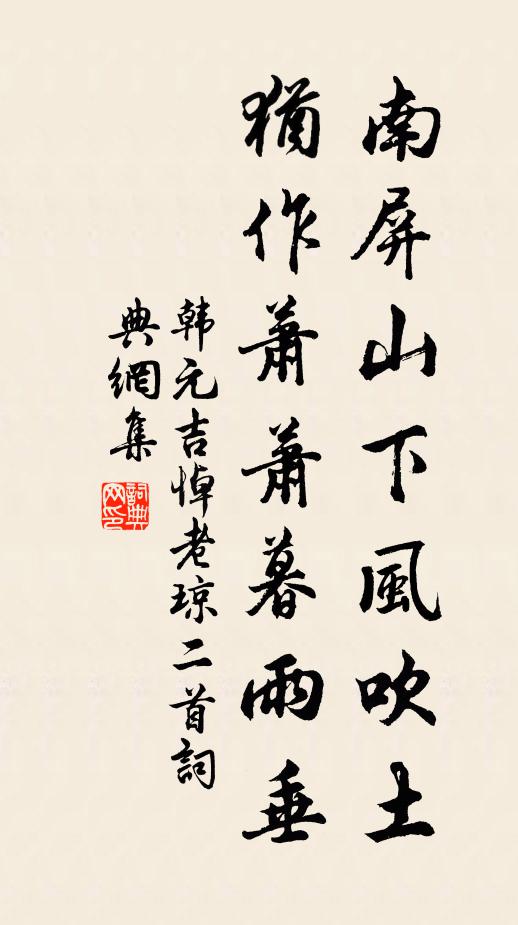 南屏山下風吹土
猶作蕭蕭暮雨垂
韩元吉悼老琼二首詞
典網集
詞典网印